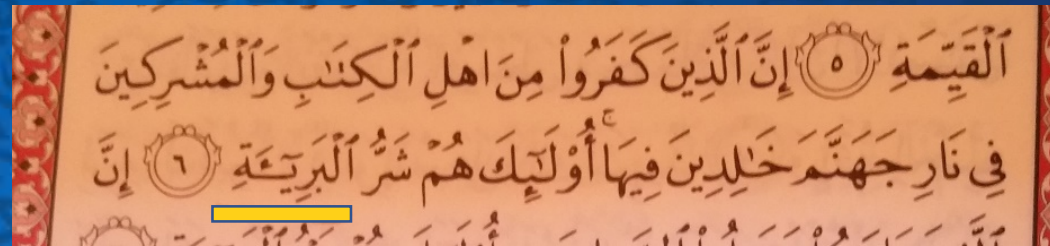 ٱلْقَيِّمَةِ ٥ إِنَّ ٱلَّذِينَ كَفَرُواْ مِنَ اهْلِ ٱلْكِتَٰبِ وَٱلْمُشْرِكِينَ
فِى نَارِ جَهَنَّمَ خَٰلِدِينَ فِيهَا أُوْلَٰٓئِكَ هُمْ شَرُّ ٱلْبَرِيٓـَٔةِ ٦ إِنَّ